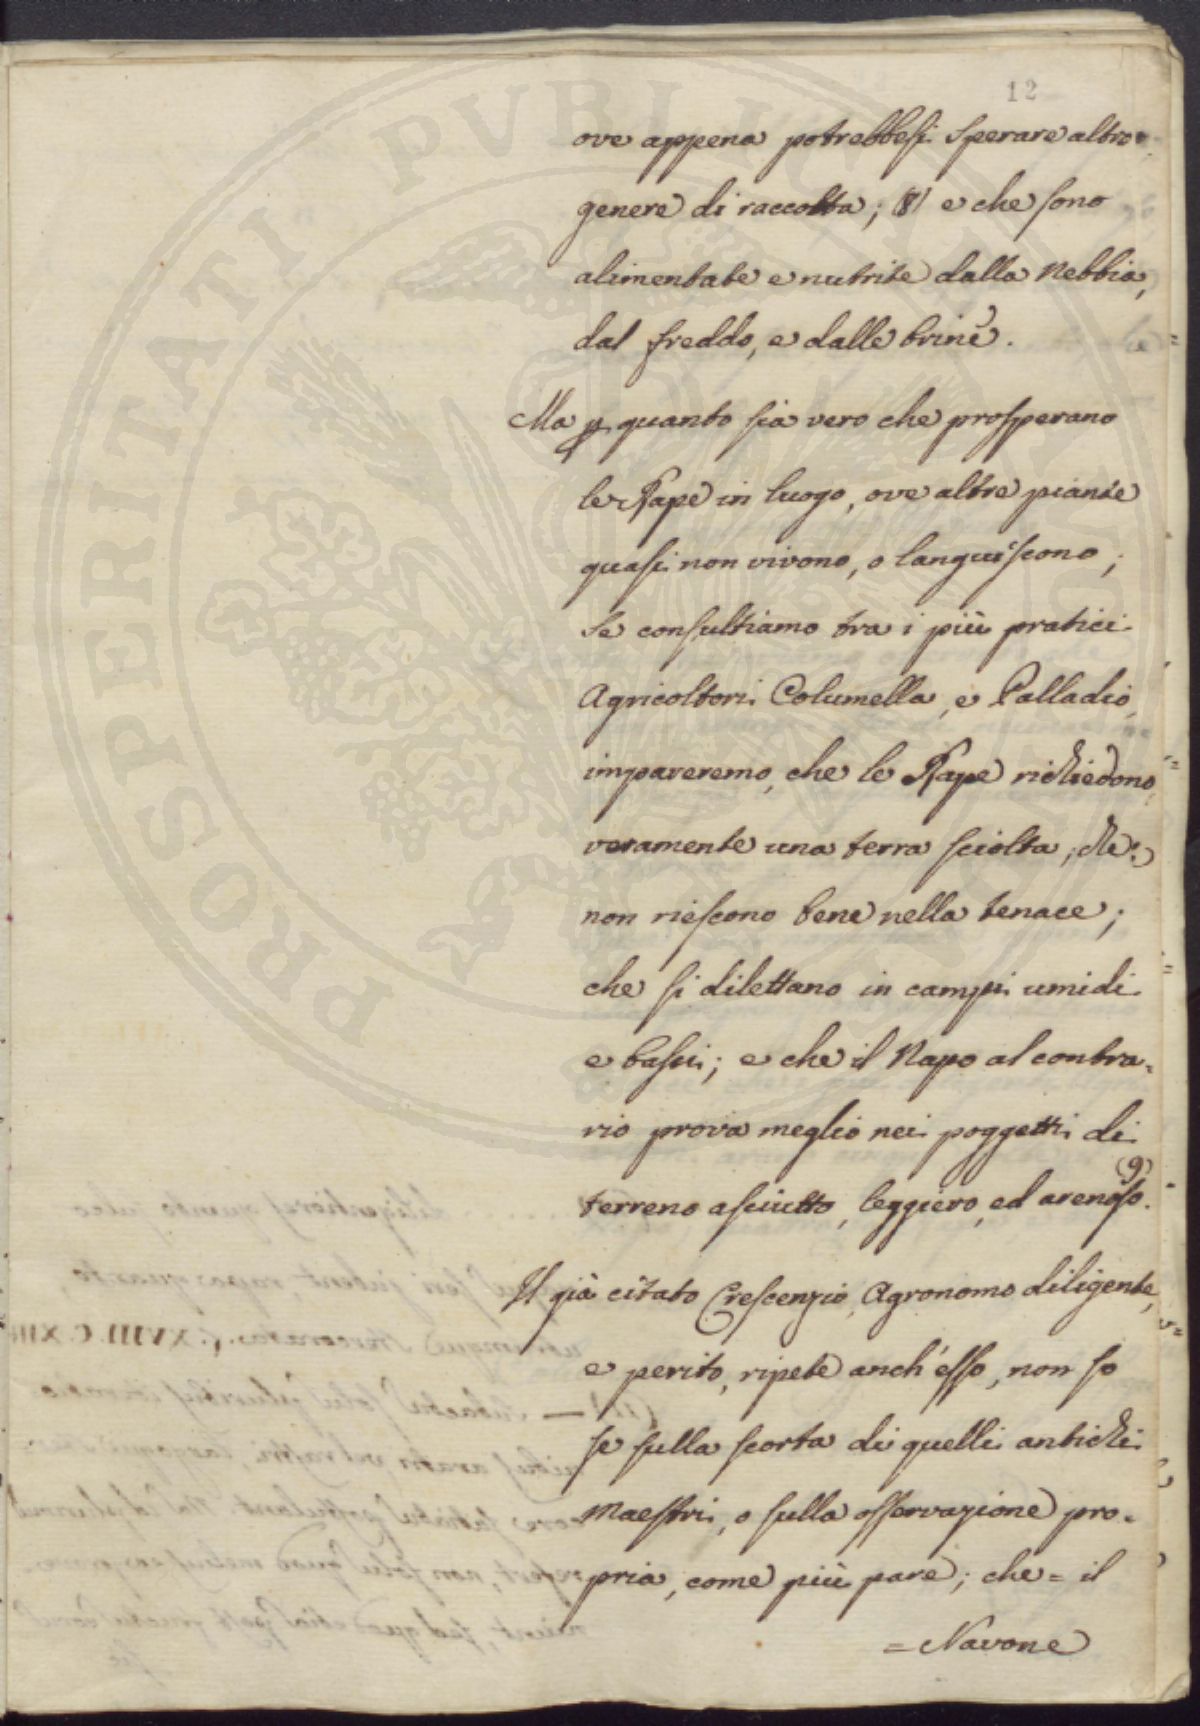 12
ove appena potrebbesi sperare altro
genere di raccolta; (8) e che sono
alimentate e nutrite dalla Nebbia,
dal freddo, e dalle brine.
Ma p quanto sia vero che prosperano
le Rape in luogo, ove altre piante
quasi non vivono, o languiscono;
Se consultiamo tra i più pratici
Agricoltori Columella, e Palladio,
impareremo, che le Rape richiedono
veramente una terra sciolta, che
non riescono bene nella tenace;
che si dilettano in campi umidi
e bassi; e che il Napo al contra=
rio prova meglio nei poggetti di
terreno asciutto, leggiero, ed arenoso. (9)
Il già citato Crescenzio, Agronomo diligente,
e perito, ripete anch'esso, non so
se sulla scorta di quelli antichi
Maestri, o sulla osservazione pro=
pria, come più pare; che = il
= Navone
PROSPERITATI PVBLICAE